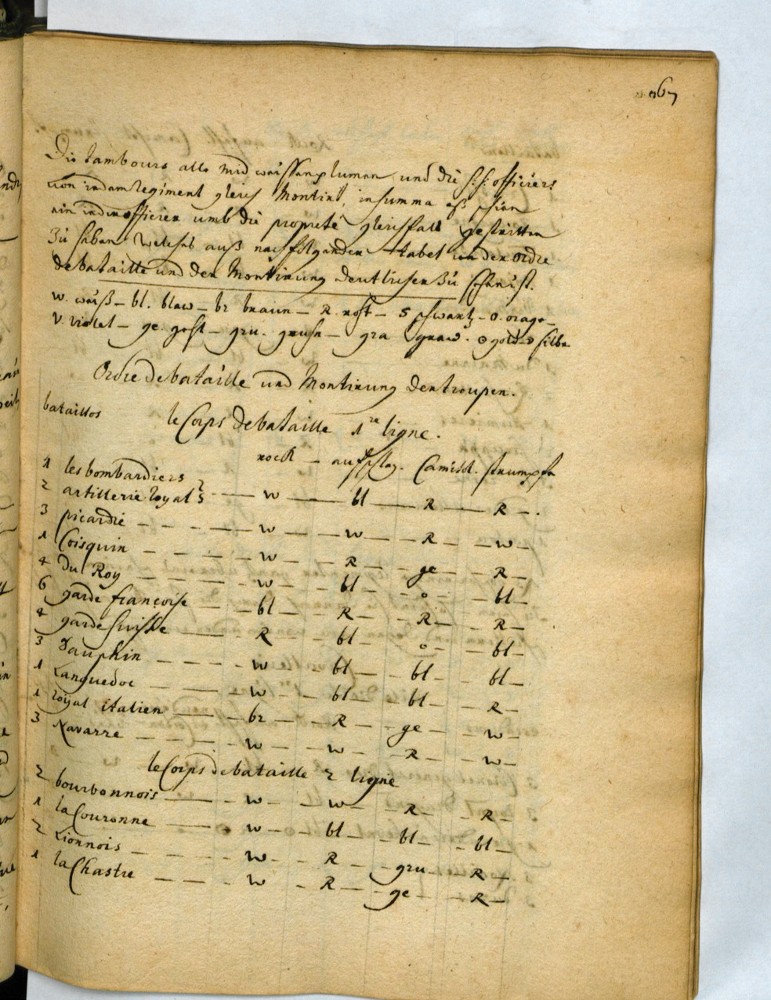 967
Die tambours alle mid weissen pluman und die S.S. officiers
von iedam Regiment gleich Montirt, in summa
ein ieder officier umb die propreté gleichfals gestritten
zu haben. Welches auß nachfolgender tabel von der ordre
de bataille und der Montirung deutlicher zu sehen ist.
w. weiß – bl. blaw – br braun – R. roht – S schwartz – o. orage –
v. violet – ge. gehl – gru. gruhn – gra graw. gold silber
Ordre de bataille und Montirung der troupen.
bataillos le Corps de bataille 1re ligne.
rock – aufschlag. Camisol. strumpfe
1 les bombardiers
2 artillerie royal – w – bl – R – R – .
3 picardie – – – – w – w – R – w –
1 Coisquin – – – – w – R – ge – R –
4 du Roy – – – – w – bl – o – bl –
6 garde françoise – bl – R – R – R –
4 garde suisse – R – bl – o – bl –
3 Dauphin – – – w – bl – bl – bl –
1 Languedoc – w – bl – bl – R –
1 royal italien – br – R – ge – w –
3 Navarre – – – w – w – R – w –
le Corps de bataille 2 ligne
2 bourbonnois – w – w – R – R –
1 la Couronne – w – bl – bl – bl –
2 Lionnois – – – – w – R – gru – R –
1 la Chastre – – – – w – R – ge – R –